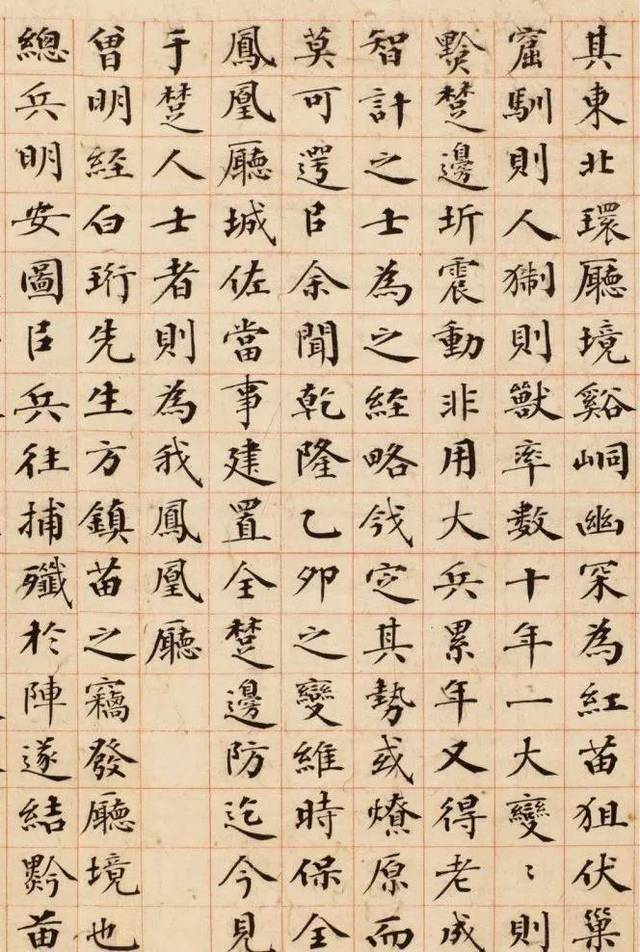 其東北環廳境谿峒幽深為紅苗狙伏巢
窟馴則人猘則獸率數十年一大變〻則
黔楚邊圻震動非用大兵累年又得老成
智計之士為之經略戡定其勢或燎原而
莫可遏㠯余聞乾隆乙卯之變維時保全
鳳凰廳城佐當事建置全楚邊防迄今見
于楚人士者則為我鳳凰廳
曾明經白珩先生方鎮苗之竊發廳境也
總兵明安圖㠯兵往捕殲於陣遂結黔苗